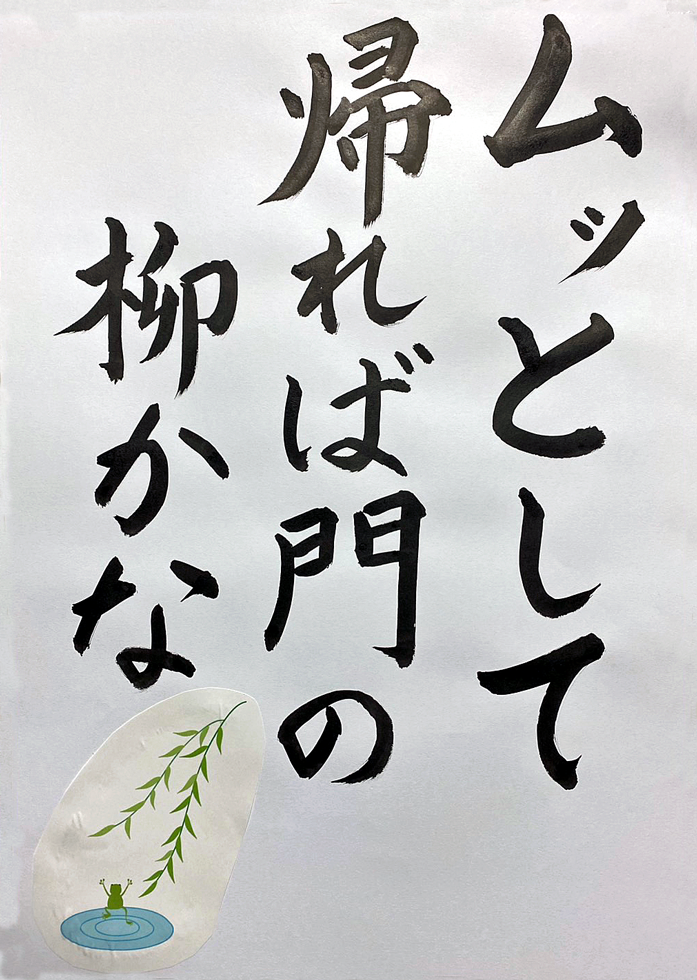 ムッとして
帰れば門の
柳かな